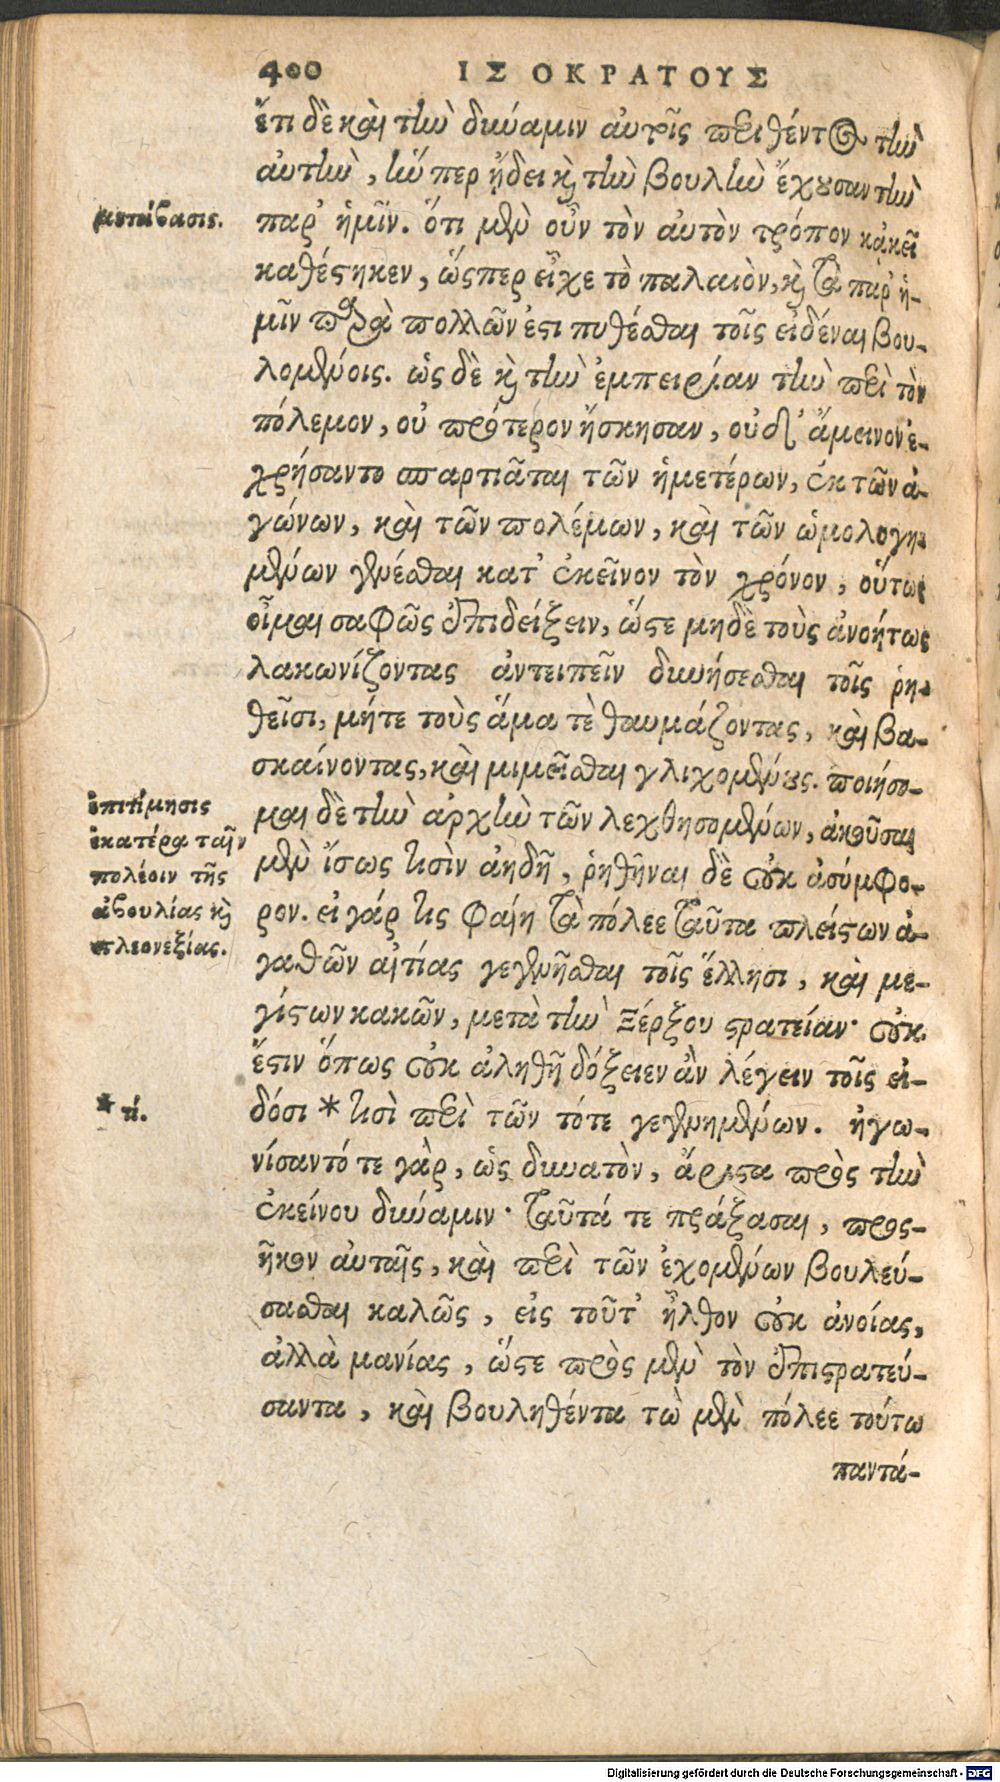 400 ΙΣΟΚΡΑΤΟΥΣ
ἔτι δὲ καὶ τὴν δύναμιν αὐτοῖς περιθέντος τὴν
αὐτὴν, ἥνπερ ᾔδει καὶ τὴν βουλὴν ἔχουσαν τὴν
μετάβασις.
παρ' ἡμῖν. ὅτι μὲν οὖν τὸν αὐτὸν τρόπον κᾀκεῖ
καθέστηκεν, ὥσπερ εἶχε τὸ παλαιὸν, καὶ τὰ παρ' ἡ-
μῖν παρὰ πολλῶν ἔστι πυθέσθαι τοῖς εἰδέναι βου-
λομένοις. ὡς δὲ καὶ τὴν ἐμπειρίαν τὴν περὶ τὸν
πόλεμον, οὐ πρότερον ἤσκησαν, οὐδ' ἄμεινον ἐ-
χρήσαντο σπαρτιᾶται τῶν ἡμετέρων, ἐκ τῶν ἀ-
γώνων, καὶ τῶν πολέμων, καὶ τῶν ὡμολογη-
μένων γενέσθαι κατ' ἐκεῖνον τὸν χρόνον, οὕτως
οἶμαι σαφῶς ἐπιδείξειν, ὥστε μηδὲ τοὺς ἀνοήτως
λακωνίζοντας ἀντειπεῖν δυνήσεσθαι τοῖς ῥη-
θεῖσι, μήτε τοὺς ἅμα τὲ θαυμάζοντας, καὶ βα-
σκαίνοντας, καὶ μιμεῖσθαι γλιχομένους. ποιήσο-
ἐπιτίμησις
ἑκατέρα ταῖν
πολέοιν τῆς
ἀβουλίας καὶ
πλεονεξίας.
μαι δὲ τὴν ἀρχὴν τῶν λεχθησομένων, ἀκοῦσαι
μὲν ἴσως τισὶν ἀηδῆ, ῥηθῆναι δὲ οὐκ ἀσύμφο-
ρον. εἰ γάρ τις φαίη τὰ πόλεε ταῦτα πλείστων ἀ-
γαθῶν αἰτίας γεγενῆσθαι τοῖς ἕλλησι, καὶ με-
γίστων κακῶν, μετὰ τὴν Ξέρξου στρατείαν· οὐκ
ἔστιν ὅπως οὐκ ἀληθῆ δόξειεν ἂν λέγειν τοῖς εἰ-
* τί.
δόσι * τισὶ περὶ τῶν τότε γεγενημένων. ἠγω-
νίσαντό τε γὰρ, ὡς δυνατὸν, ἄριστα πρὸς τὴν
ἐκείνου δύναμιν· ταῦτά τε πράξασαι, προς-
ῆκον αὐταῖς, καὶ περὶ τῶν ἐχομένων βουλεύ-
σασθαι καλῶς, εἰς τοῦτ' ἦλθον οὐκ ἀνοίας,
ἀλλὰ μανίας, ὥστε πρὸς μὲν τὸν ἐπιστρατεύ-
σαντα, καὶ βουληθέντα τὼ μὲν πόλεε τούτω
παντά-
Digitalisierung gefördert durch die Deutsche Forschungsgemeinschaft - DFG